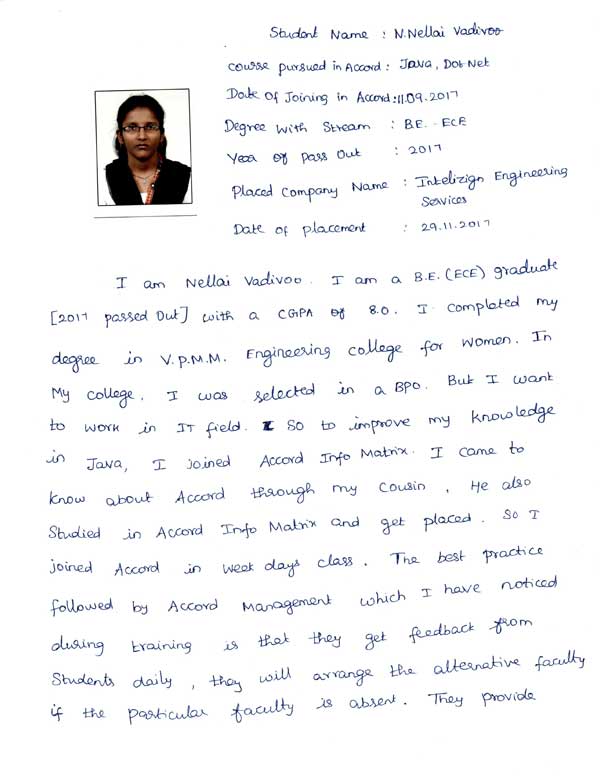 Student Name : N.Nellai Vadivoo
Course pursued in Accord : Java, Dot Net
Date of Joining in Accord : 11.09.2017
Degree with Stream : B.E. - ECE
Year of Pass Out : 2017
Placed Company Name : Intelizign Engineering
Services
Date of placement : 29.11.2017
I am Nellai Vadivoo. I am a B.E. (ECE) graduate
[2017 passed Out] with a CGPA of 8.0. I completed my
degree in V.P.M.M. Engineering college for Women. In
My college, I was selected in a BPO. But I want
to work in IT field. So to improve my knowledge
in Java, I joined Accord Info Matrix. I came to
know about Accord through my Cousin, He also
Studied in Accord Info Matrix and get placed. So I
joined Accord in week days class. The best practice
followed by Accord Management which I have noticed
during training is that they get feedback from
Students daily, they will arrange the alternative faculty
if the particular faculty is absent. They provide